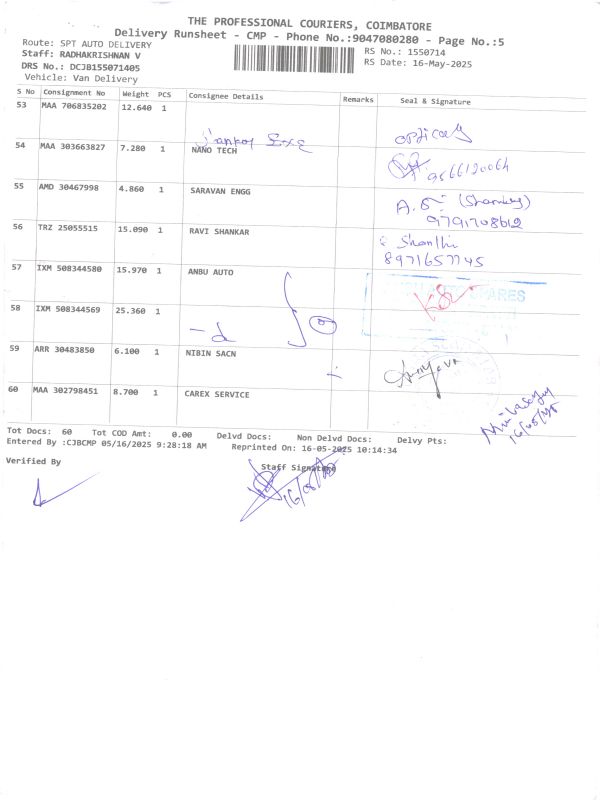 THE PROFESSIONAL COURIERS, COIMBATORE
Delivery Runsheet - CMP - Phone No.:9047080280 - Page No.:5
Route: SPT AUTO DELIVERY
RS No.: 1550714
Staff: RADHAKRISHNAN V
RS Date: 16-May-2025
DRS No.: DCJB155071405
Vehicle: Van Delivery
S No Consignment No Weight PCS Consignee Details Remarks Seal & Signature
53 MAA 706835202 12.640 1
optical
54 MAA 303663827 7.280 1 NANO TECH
9566120064
55 AMD 30467998 4.860 1 SARAVAN ENGG
A.S (Shamley)
9791708612
56 TRZ 25055515 15.090 1 RAVI SHANKAR
Shanthi
8971657745
57 IXM 508344580 15.970 1 ANBU AUTO
SPARES
58 IXM 508344569 25.360 1
- d
59 ARR 30483850 6.100 1 NIBIN SACN
60 MAA 302798451 8.700 1 CAREX SERVICE
16/05/25
Tot Docs: 60 Tot COD Amt: 0.00 Delvd Docs: Non Delvd Docs: Delvy Pts:
Entered By :CJBCMP 05/16/2025 9:28:18 AM Reprinted On: 16-05-2025 10:14:34
Verified By
Staff Signature
16/05/25